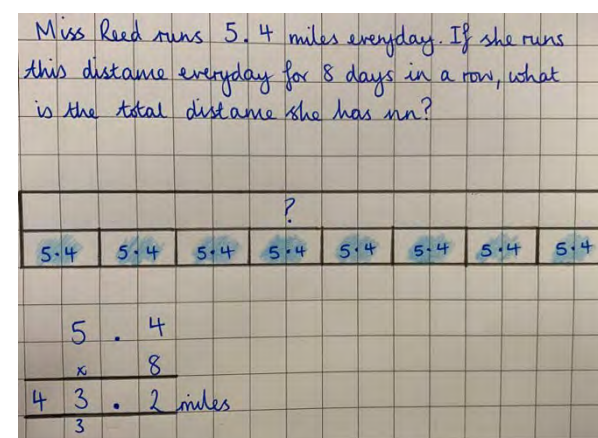 Miss Reed runs 5.4 miles everyday. If she runs
this distance everyday for 8 days in a row, what
is the total distance she has run?
?
5.4 5.4 5.4 5.4 5.4 5.4 5.4 5.4
5.4
x 8
43.2 miles
3